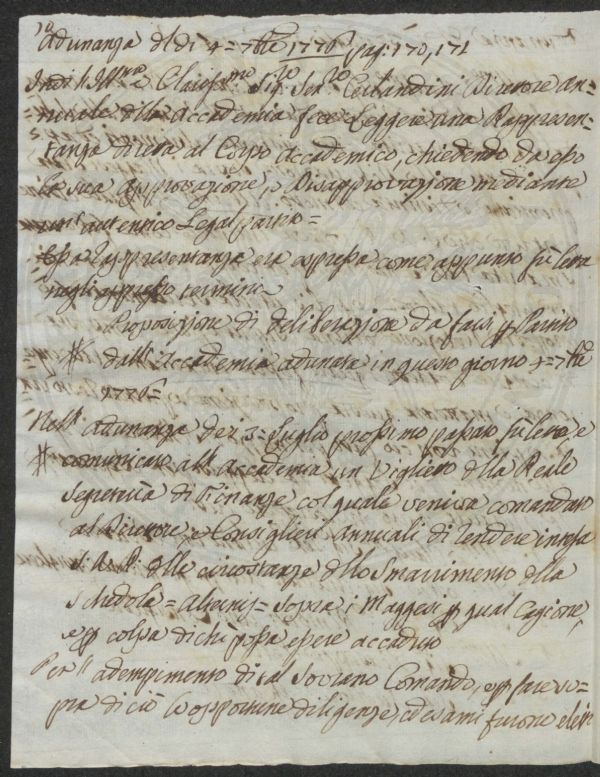 Adunanza del dì 4 = 7bre 1776 pag: 170, 171
Indi l'Ill.mo e Clariss.mo Sig.re Sen.re Certandini Direttore an=
nuale della Accademia fece Leggere una Rappresen=
tanza diretta al Corpo Accademico, chiedendo da esso
la sua approvazione, o Disapprovazione mediante
un autentico Legal partito =
Essa Rappresentanza era espressa come appunto fù letta
negli appresso termini
Proposizione di deliberazione da farsi p Partito
dall'Accademia adunata in questo giorno 4 = 7bre
1776 =
Nell'adunanza de 3 = Luglio prossimo passato fù letto, e
comunicato all'Accademia un Viglietto della Reale
Segreteria di Finanze col quale veniva comandato
al Direttore, e Consiglieri Annuali di rendere intesa
S. A. R. delle circostanze dello Smarrimento della
Schedola = Alternis = sopra i Maggesi p qual cagione,
e p colpa di chi possa essere accaduto
Per l'adempimento di tal Sovrano Comando, e p fare so=
pra di ciò le opportune diligenze, ed esami furono eletti